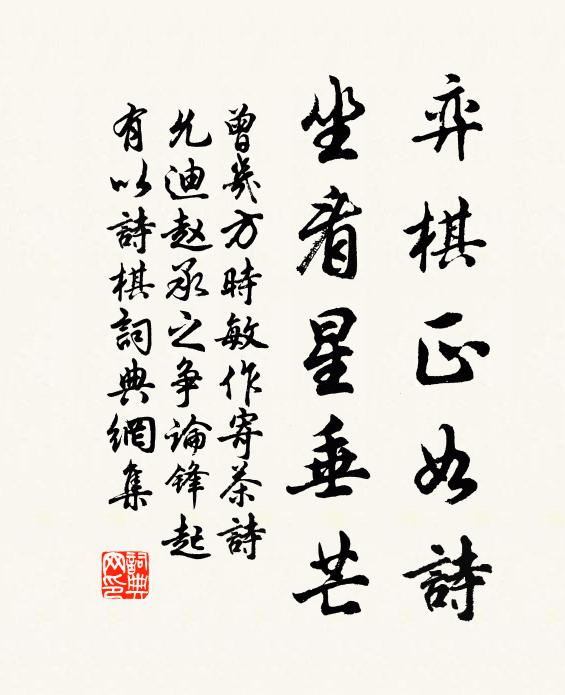 弈棋正如詩
坐看星垂芒
曾幾方時敏作寄茶詩
允迪赵承之争論鋒起
有以詩棋詞典網集
詞典网印